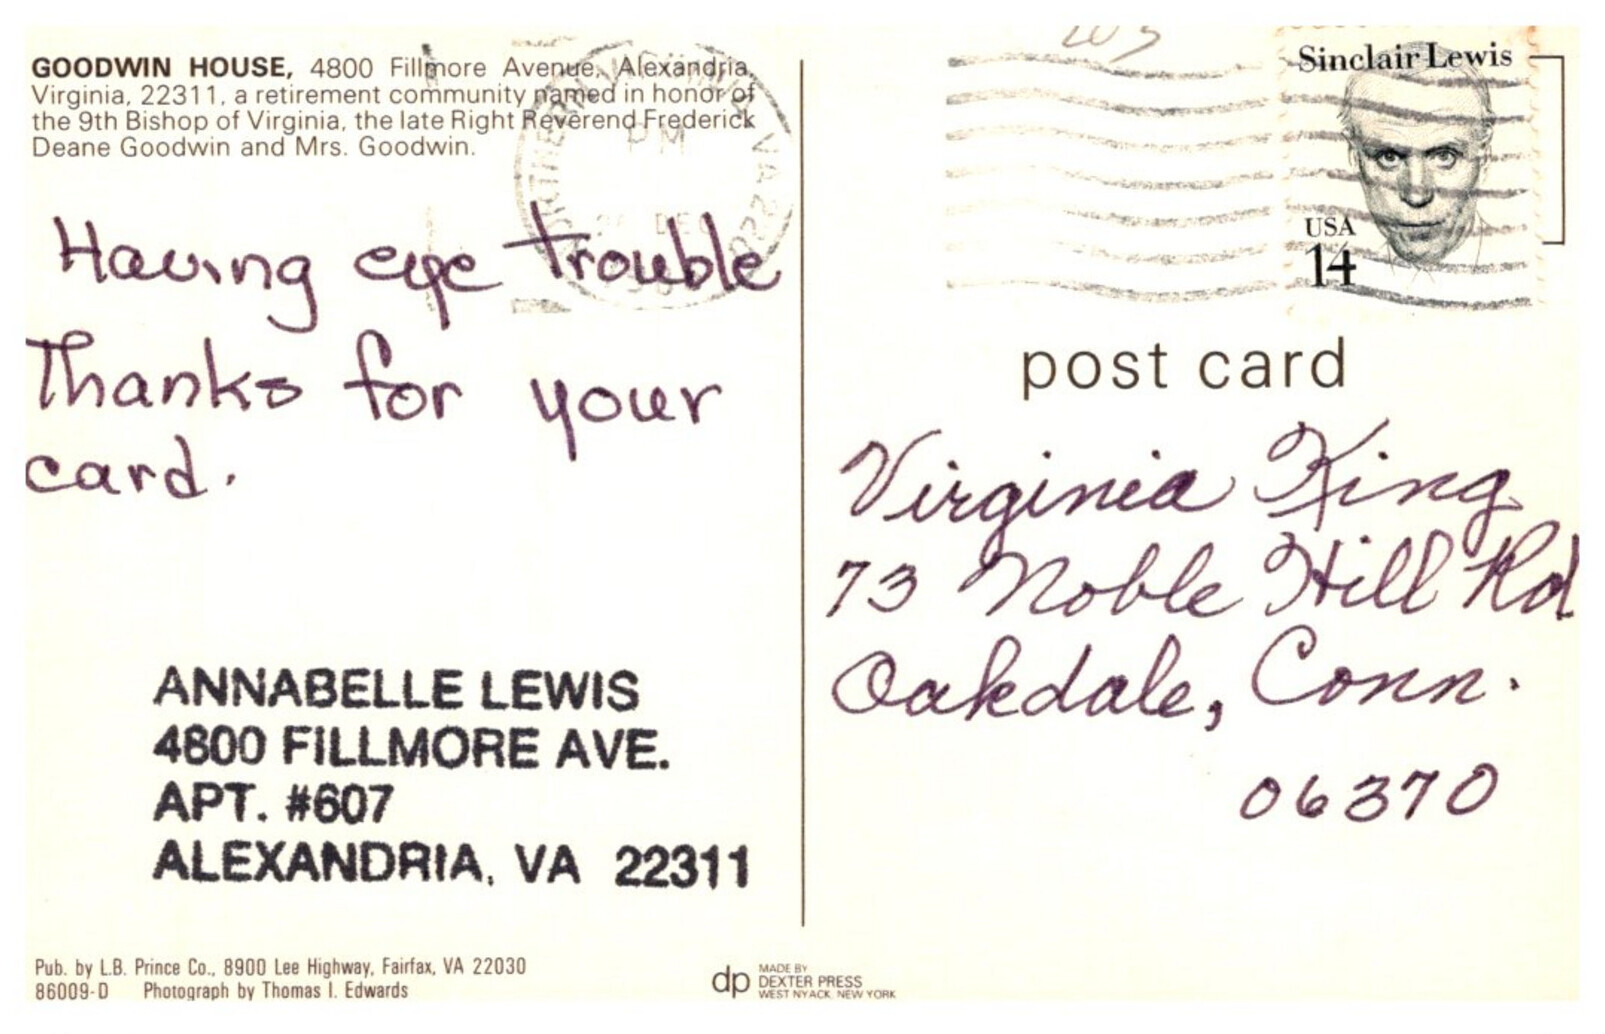 GOODWIN HOUSE, 4800 Fillmore Avenue, Alexandria,
Virginia, 22311, a retirement community named in honor of
the 9th Bishop of Virginia, the late Right Reverend Frederick
Deane Goodwin and Mrs. Goodwin.
PM
VA 220
DEC
Having eye trouble
Thanks for your
card.
ANNABELLE LEWIS
4800 FILLMORE AVE.
APT. #607
ALEXANDRIA, VA 22311
Pub. by L.B. Prince Co., 8900 Lee Highway, Fairfax, VA 22030
86009-D Photograph by Thomas I. Edwards
Sinclair Lewis
USA
14
post card
Virginia King
73 Noble Hill Rd
Oakdale, Conn.
06370
dp MADE BY
DEXTER PRESS
WEST NYACK, NEW YORK